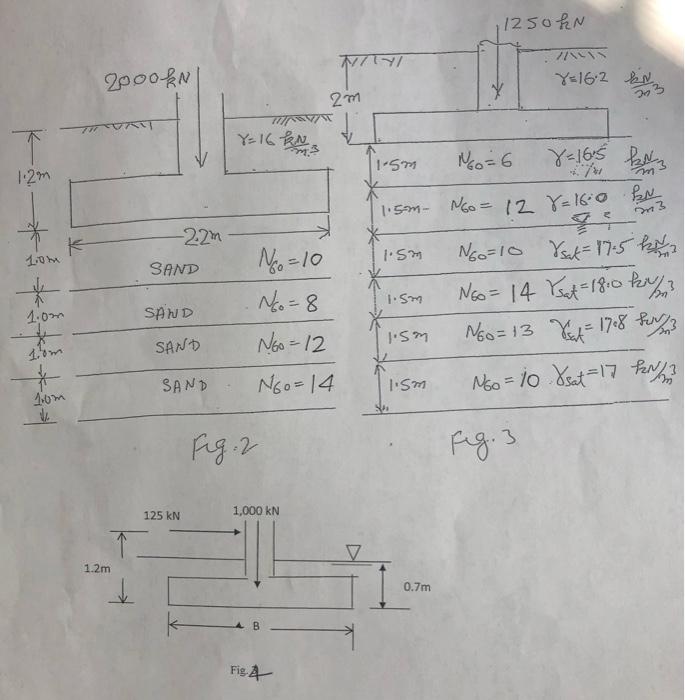 2000 kN
γ=16 kN/m³
1.2m
2.2m
1.0m
SAND N60=10
1.0m
SAND N60=8
1.0m
SAND N60=12
1.0m
SAND N60=14
Fig.2
1250 kN
γ=16.2 kN/m³
2m
1.5m N60=6 γ=16.5 kN/m³
1.5m N60=12 γ=16.0 kN/m³
1.5m N60=10 γsat=17.5 kN/m³
1.5m N60=14 γsat=18.0 kN/m³
1.5m N60=13 γsat=17.8 kN/m³
1.5m N60=10 γsat=17 kN/m³
Fig.3
125 kN
1,000 kN
1.2m
0.7m
B
Fig.4